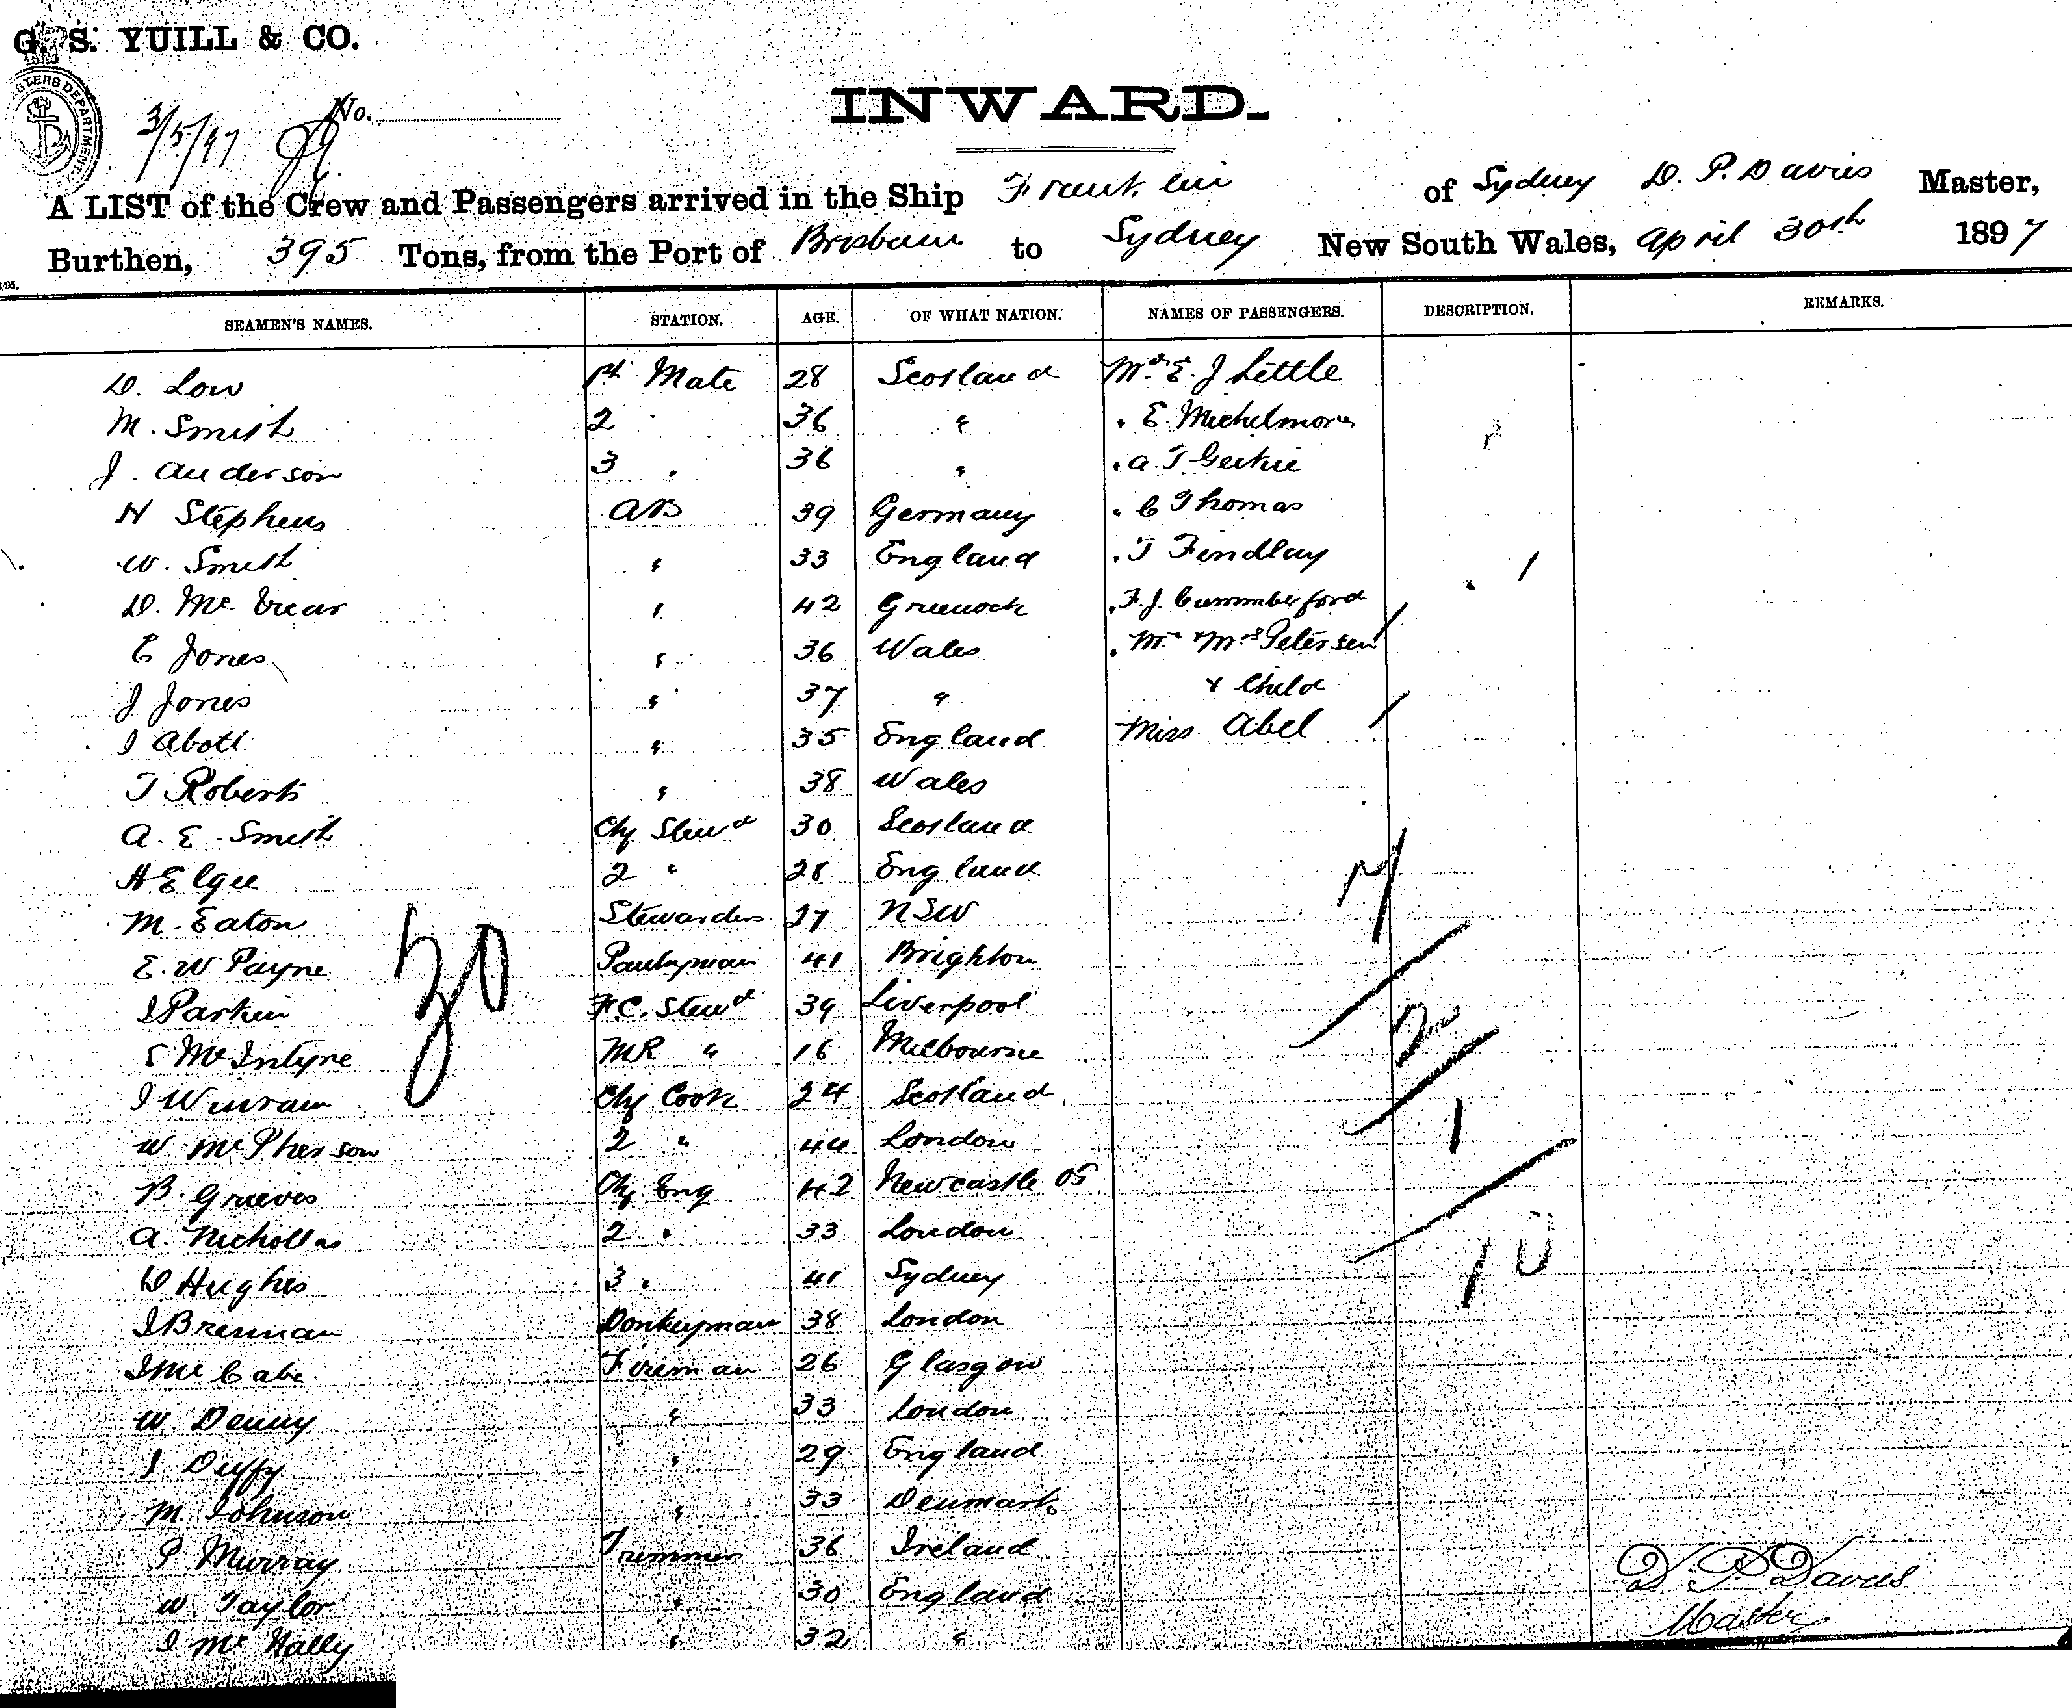 G. S. YUILL & CO.
3/5/97 No.
INWARD.
A LIST of the Crew and Passengers arrived in the Ship Franklin of Sydney D. P. Davies Master,
Burthen, 395 Tons, from the Port of Brisbane to Sydney New South Wales, April 30th 1897
SEAMEN'S NAMES. STATION. AGE. OF WHAT NATION. NAMES OF PASSENGERS. DESCRIPTION. REMARKS.
D. Low 1st Mate 28 Scotland Mr. E. J Little
M. Smith 2 " 36 " " E. Michelmore
J. Anderson 3 " 36 " " A. T Geikie
H Stephens AB 39 Germany " C Thomas
W. Smith " 33 England " T Findlay
D. Mc. Vicar " 42 Greenock " F. J. Cummberford
E Jones " 36 Wales " Mr & Mrs Petersen
J Jones " 37 " & Child
J Abott " 35 England Miss Abel
T Roberts " 38 Wales
A. E. Smith Chf Stewd 30 Scotland
H Elgee 2 " 28 England 7
M. Eaton Stewardess 27 NSW
E. W Payne Pantryman 41 Brighton
30
J Parkin F.C. Stewd 39 Liverpool 2
S McIntyre MR " 16 Melbourne
J Winram Chf Cook 24 Scotland 1
W. McPherson 2 " 44 London
B. Greeves Chf Eng 42 Newcastle OS
A. Nichollas 2 " 33 London 10
D Hughes 3 " 41 Sydney
J Brennan Donkeyman 38 London
J McCabe Fireman 26 Glasgow
W. Denny " 33 London
J Duffy " 29 England
M Johnson " 33 Denmark
P Murray Trimmer 36 Ireland
W. Taylor " 30 England
J McNally " 32 "
D. P. Davies
Master